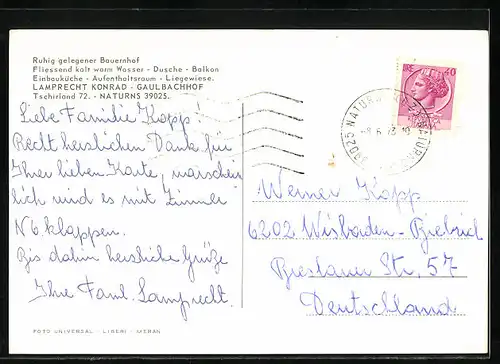 Ruhig gelegener Bauernhof
Fliessend kalt warm Wasser - Dusche - Balkon
Einbauküche - Aufenthaltsraum - Liegewiese.
LAMPRECHT KONRAD - GAULBACHHOF
Tschirland 72. - NATURNS 39025.
Liebe Familie Kopp!
Recht herzlichen Dank für
Ihrer lieben Karte, warschein
lich wird es mit Zimmer
N6 klappen.
Bis dahin herzliche Grüße
Ihre Faml. Lamprecht.
FOTO UNIVERSAL - LIBERI - MERAN
39025 NATURNO
-8.6.73.10
Werner Kopp
6202 Wisbaden-Biebrich
Breslauer Str. 57
Deutschland